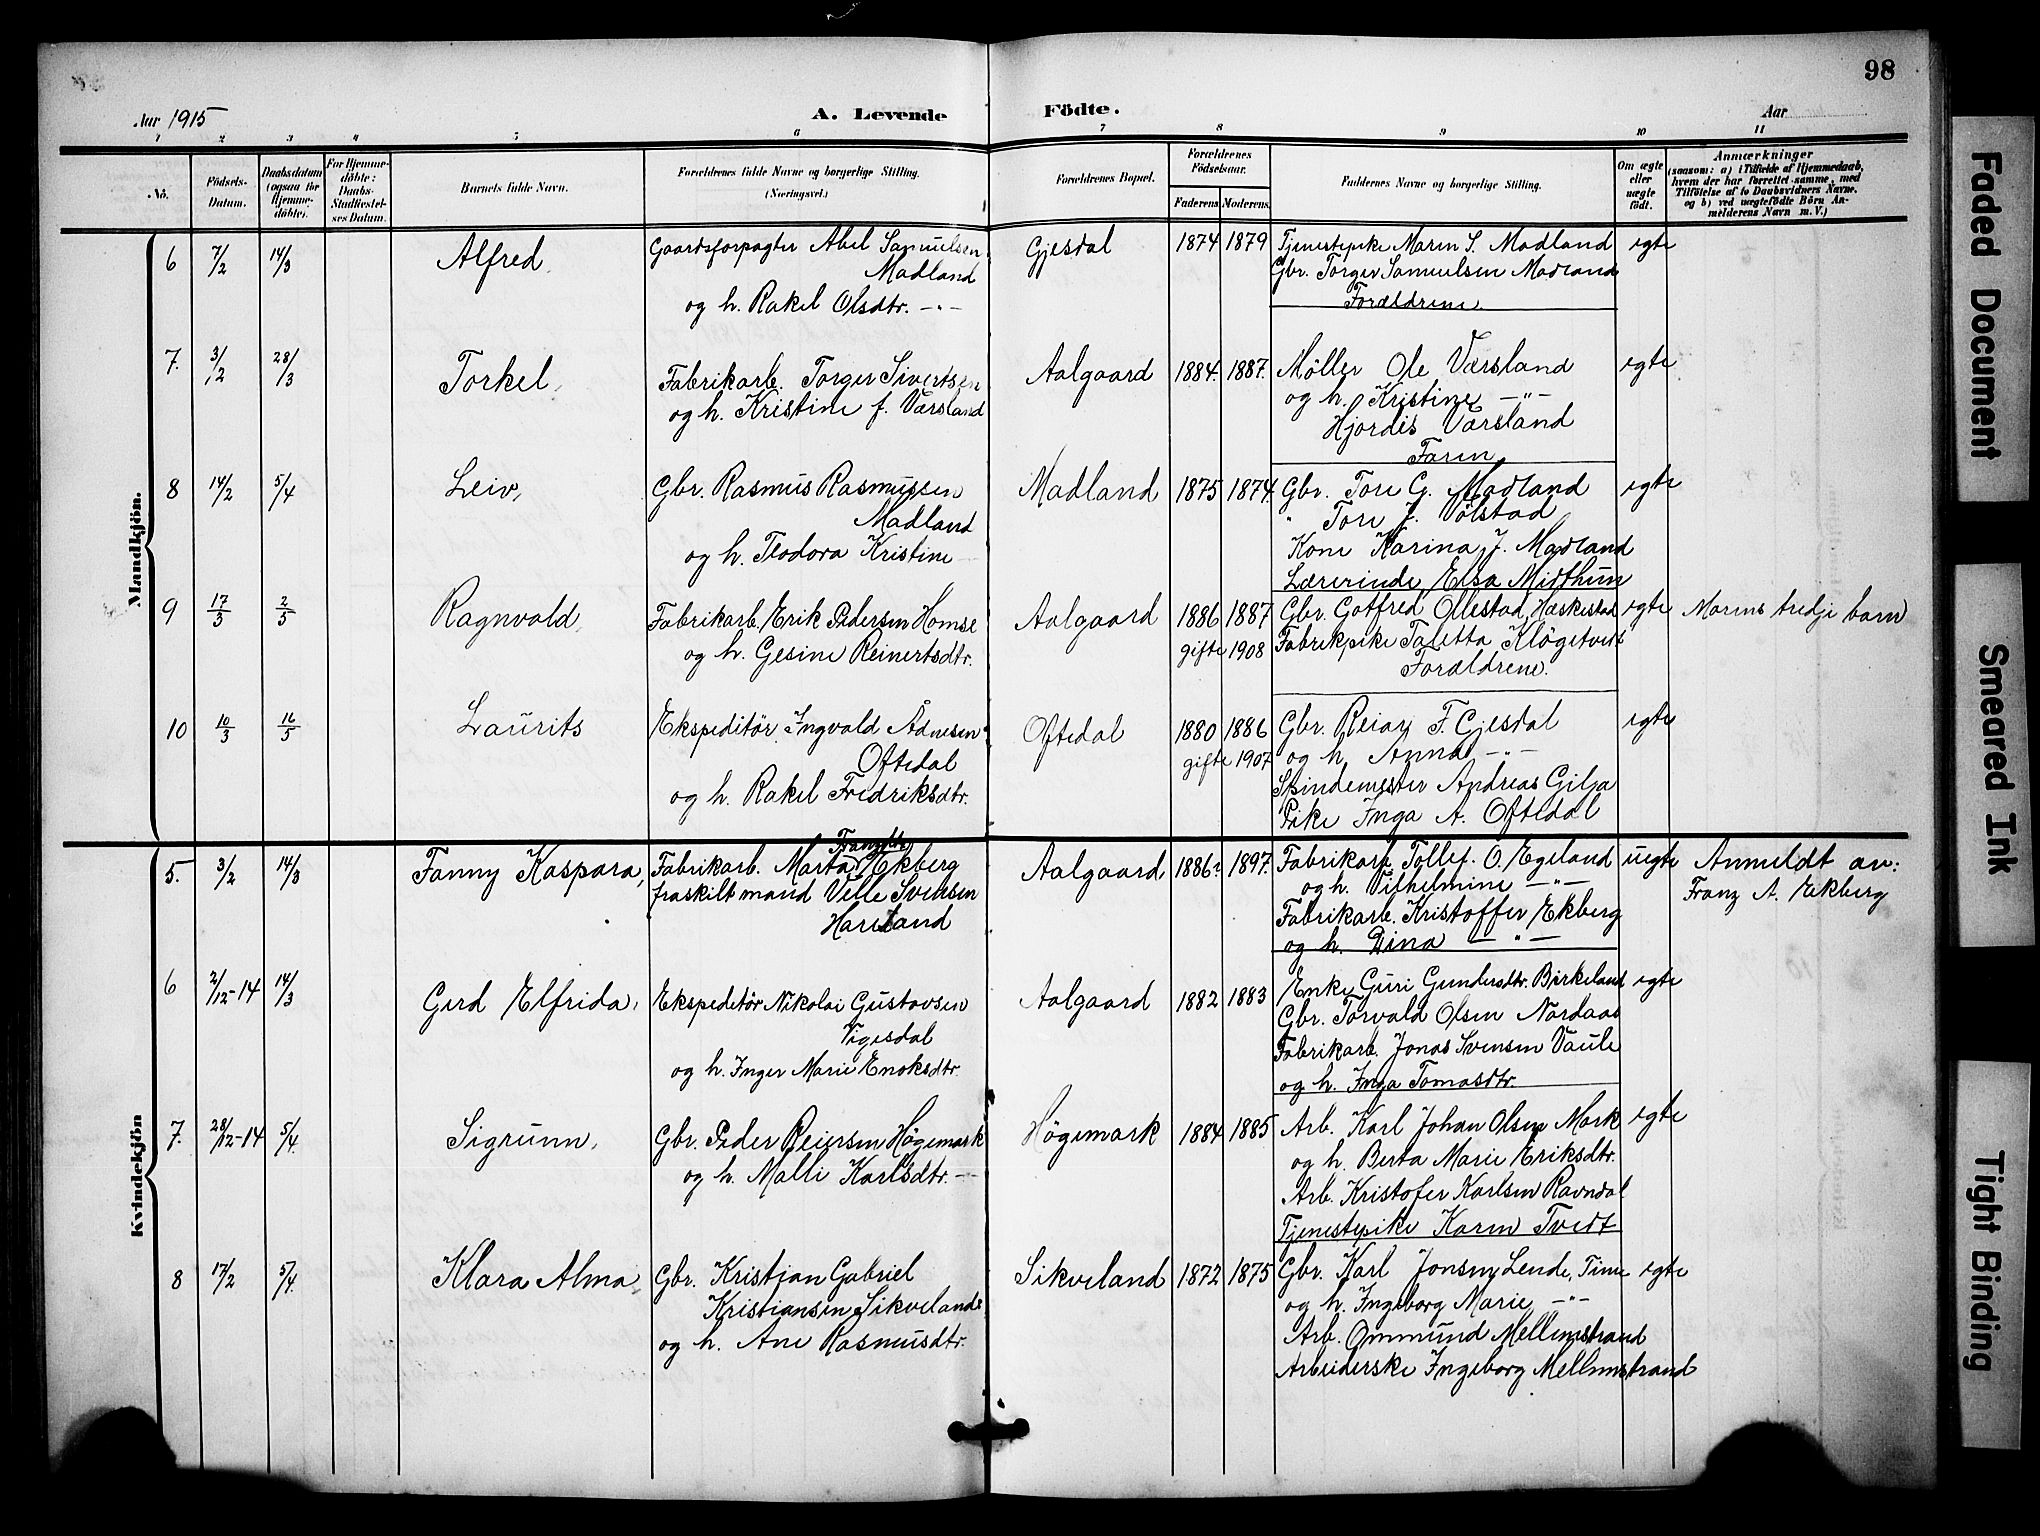 98
Aar 1915
A. Levende
Födte.
Aar
1 2 3 4 5 6 7 8 9 10 11
No.
Födsels-
Datum.
Daabsdatum
(ogsaa for
Hjemme-
döbte).
For Hjemme-
döbte:
Daabs-
Stadfæstel-
ses Datum.
Barnets fulde Navn.
Forældrenes fulde Navne og borgerlige Stilling.
(Næringsvei.)
Forældrenes Bopæl.
Forældrenes
Födselsaar.
Faderens. Moderens.
Faddernes Navne og borgerlige Stilling.
Om ægte
eller
uægte
födt.
Anmærkninger
(saasom: a) i Tilfælde af Hjemmedaab,
hvem der har forrettet samme, med
Tilföielse af to Daabsvidners Navne.
og b) ved uægtefödte Börn An-
melderens Navn m. V.)
Mandkjön.
6 7/2 14/3 Alfred Gaardsforpagter Abel Samuelsen
Madland
og h. Rakel Olsdtr. -"-
Gjesdal 1874 1879
Tjenestepike Maren S. Madland
Gbr. Torger Samuelsen Madland
Forældrene
egte
7. 3/2 28/3 Torkel, Fabrikarb. Torger Sivertsen
og h. Kristine f. Værsland
Aalgaard 1884. 1887.
Møller Ole Værsland
og h. Kristine -"-
Hjordis Værsland
Faren
egte
8 14/2 5/4 Leiv, Gbr. Rasmus Rasmussen
Madland
og h. Teodora Kristine
Madland 1875 1874
Gbr. Tore G. Madland
" Tore J. Vølstad
Kone Karina J. Madland
Lærerinde Elsa Midthun
egte
9 17/3 2/5 Ragnvald, Fabrikarb. Erik Pedersen Homse
og h. Gesine Reinertsdtr.
Aalgaard 1886 1887
gifte 1908
Gbr. Gotfred Ollestad, Hæskestad
Fabrikpike Taletta Kløgetvedt
Forældrene.
egte Morens tredje barn
10 10/3 16/5 Laurits Ekspeditör Ingvald Ådnesen
Oftedal
og h. Rakel Fredriksdtr.
Oftedal 1880 1886
gifte 1907
Gbr. Reiar F. Gjesdal
og h. Anna -"-
Spindemester Andreas Gilja
Pike Inga A. Oftedal
egte
Kvindekjön
5. 3/2 14/3 Fanny Kaspara, Franzdtr
Fabrikarb. Marta Ekberg
fraskilt mand Ville Svensen
Hareland
Aalgaard 1886? 1897.
Fabrikarb. Tollef. O. Egeland
og h. Vilhelmine -"-
Fabrikarb. Kristoffer Ekberg
og h. Dina -"-
uegte Anmeldt av:
Franz A. Ekberg
6 2/12-14 14/3 Gerd Elfrida, Ekspeditör Nikolai Gustavsen
Vigesdal
og h. Inger Marie Enoksdtr.
Aalgaard 1882 1883
Enke Guri Gundersdtr. Birkeland
Gbr. Torvald Olsen Nordaas
Fabrikarb. Jonas Svensen Vaule
og h. Inga Tomasdtr.
egte
7. 28/12-14 5/4. Sigrunn, Gbr. Peder Reiersen Högemark
og h. Malli Karlsdtr. -"-
Högemark 1884 1885
Arb. Karl Johan Olsen Mork
og h. Berta Marie Eriksdtr.
Arb. Kristofer Karlsen Ravndal
Tjenestepike Karen Tvedt
egte
8 17/2 5/4. Klara Alma, Gbr. Kristian Gabriel
Kristiansen Sikveland
og h. Ane Rasmusdtr.
Sikveland 1872 1875
Gbr. Karl Jonsen Lende, Time
og h. Ingeborg Marie -"-
Arb. Ommund Mellemstrand
Arbeiderske Ingeborg Mellemstrand
egte
Faded Document
Smeared Ink
Tight Binding